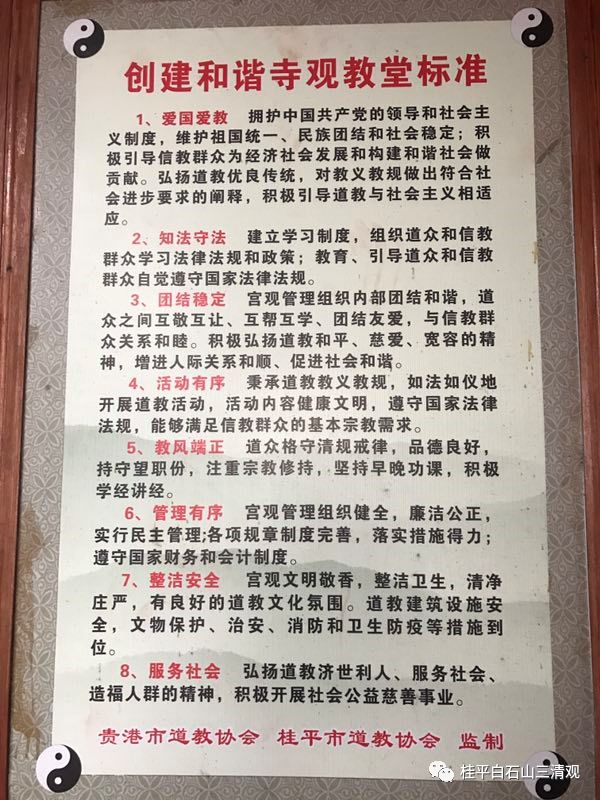 创建和谐寺观教堂标准
1、爱国爱教 拥护中国共产党的领导和社会主
义制度，维护祖国统一、民族团结和社会稳定；积
极引导信教群众为经济社会发展和构建和谐社会做
贡献。弘扬道教优良传统，对教义教规做出符合社
会进步要求的阐释，积极引导道教与社会主义相适
应。
2、知法守法 建立学习制度，组织道众和信教
群众学习法律法规和政策；教育、引导道众和信教
群众自觉遵守国家法律法规。
3、团结稳定 宫观管理组织内部团结和谐，道
众之间互敬互让、互帮互学、团结友爱，与信教群
众关系和睦。积极弘扬道教和平、慈爱、宽容的精
神，增进人际关系和顺、促进社会和谐。
4、活动有序 秉承道教教义教规，如法如仪地
开展道教活动，活动内容健康文明，遵守国家法律
法规，能够满足信教群众的基本宗教需求。
5、教风端正 道众格守清规戒律，品德良好，
持守望职份，注重宗教修持，坚持早晚功课，积极
学经讲经。
6、管理有序 宫观管理组织健全，廉洁公正，
实行民主管理;各项规章制度完善，落实措施得力；
遵守国家财务和会计制度。
7、整洁安全 宫观文明敬香，整洁卫生，清净
庄严，有良好的道教文化氛围。道教建筑设施安
全，文物保护、治安、消防和卫生防疫等措施到
位。
8、服务社会 弘扬道教济世利人、服务社会、
造福人群的精神，积极开展社会公益慈善事业。
贵港市道教协会 桂平市道教协会 监制
桂平白石山三清观